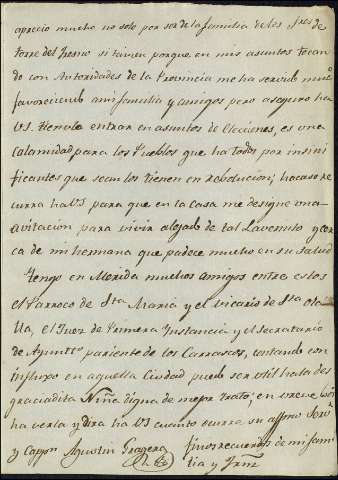 aprecio mucho no solo por ser de la familia de los Sres de
torre del fresno si tamen porque en mis asuntos tocan
do con Autoridades de la Provincia me ha servido muo
favoreciendo a mi familia y amigos pero aseguro ha
VS. Henole entrar en asuntos de Elecciones, es una
Calamidad para los Pueblos que ha todos por insini
ficantes que sean los tienen en reboluciõn; hacaso re
curra ha VS para que en la Casa me designe una
avitación para vivir alejado de tal Lavernito y cer
ca de mi hermana que padece mucho en su salud
Tengo en Merida muchos amigos entre estos
el Parroco de Sta Maria y el vicario de Sta ola
lla, el Juez de Primera Instancia y el secretario
de Ayuntto pariente de los Carrascos, contando con
influxo en aquella Ciudad puedo ser util ha la des
graciadita Niña digna de mejor trato; en breve
ha verla y dira ha VS cuanto ocurra su affmo
y Cappn Agustin Gragera finos recuerdos de mi fami
lia y